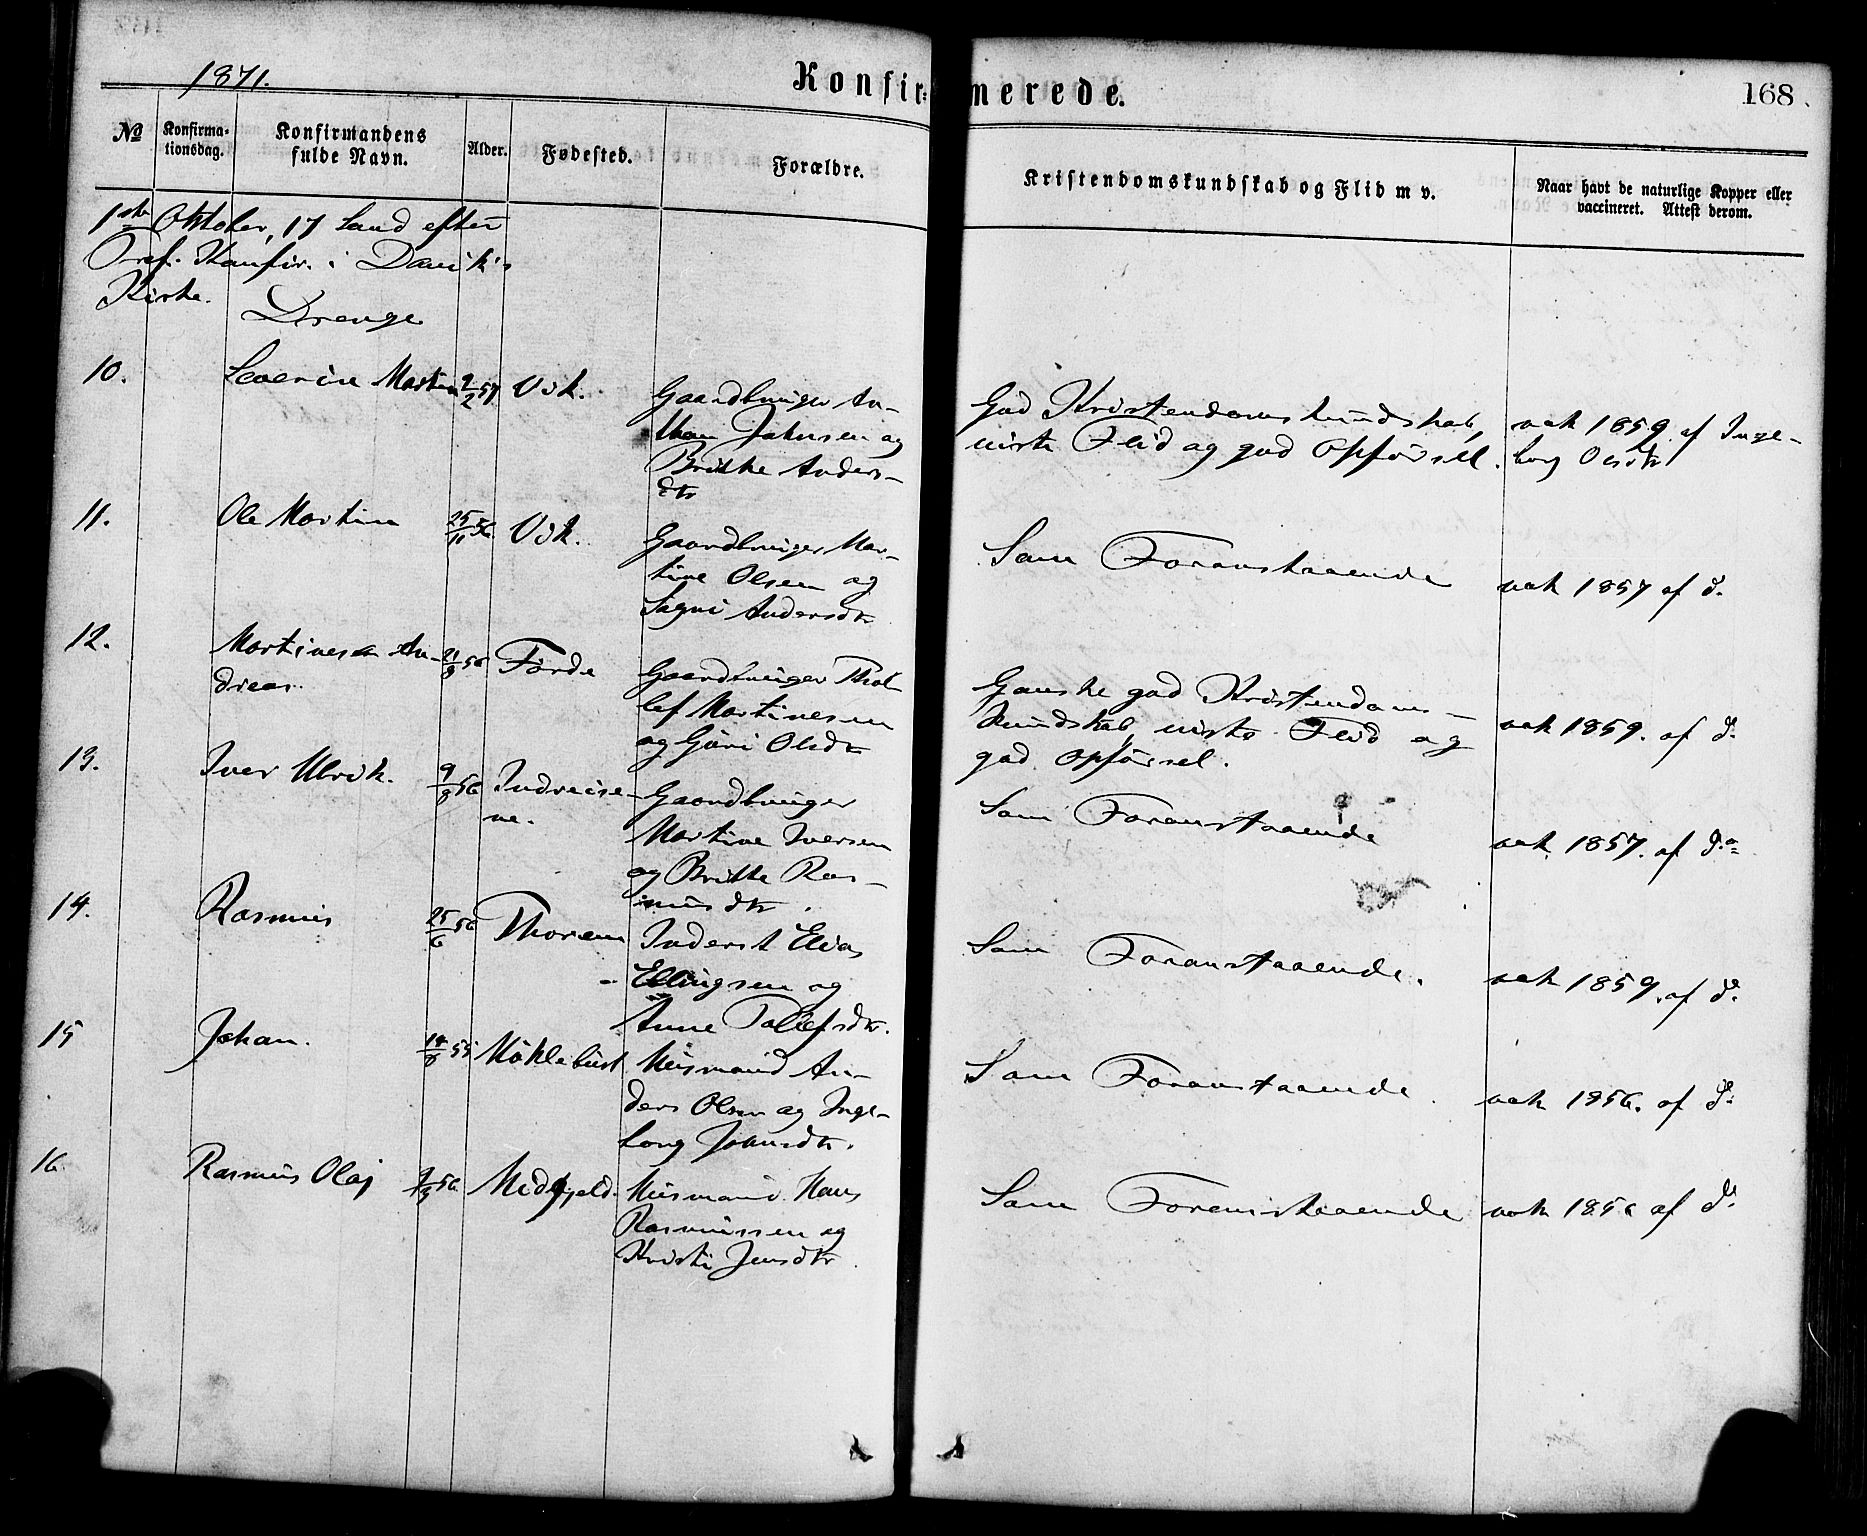 1871.
Konfirmerede.
168
№
Konfirma-
tionsdag.
Konfirmandens
fulde Navn.
Alder.
Fødested.
Forældre.
Kristendomskundskab og Flid m v.
Naar havt de naturlige Kopper eller
vaccineret. Attest derom.
1ste Oktober, 17 Sønd efter
Tref. Konfir. i Davik's
Kirke.
Drenge
10. Severine Martin 9/2 57 Vik. Gaardbruger An-
thon Johnsen og
Britthe Anders-
dtr
God Kristendomskundskab,
niste Flid og god Opførsel.
vak 1859. af Inge-
borg Olsdtr
11. Ole Martin 25/11 56 Vik. Gaardbruger Mar-
tine Olsen og
Sogni Andersdtr
Som Foranstaaende
vak 1857 af d.
12. Martines An-
dreas. 21/8 56 Førde Gaardbruger Thol-
lef Martinesen
og Gøri Olsdtr
Ganske god Kristendoms-
kundskab, niste Flid og
god Opførsel.
vak 1859. af d.
13. Iver Ulrik. 9/8 56 Indreise-
ne. Gaardbruger
Martine Iversen
og Britthe Ras-
musdtr.
Som Foranstaaende
vak. 1857. af do
14. Rasmus 25/6 56 Thorem Inderst Elias
Ellingsen og
Anne Tollefsdtr.
Som Foranstaaende.
vak 1859. af d.
15 Johan. 14/8 55 Møklebust Husmand An-
ders Olsen og Inge-
borg Johnsdtr.
Som Foranstaaende.
vak 1856. af d.
16. Rasmus Olaj 9/9 56 Midgjeld. Husmand Hans
Rasmussen og
Kristi Jensdtr.
Som Foranstaaende
vak 1856 af d.